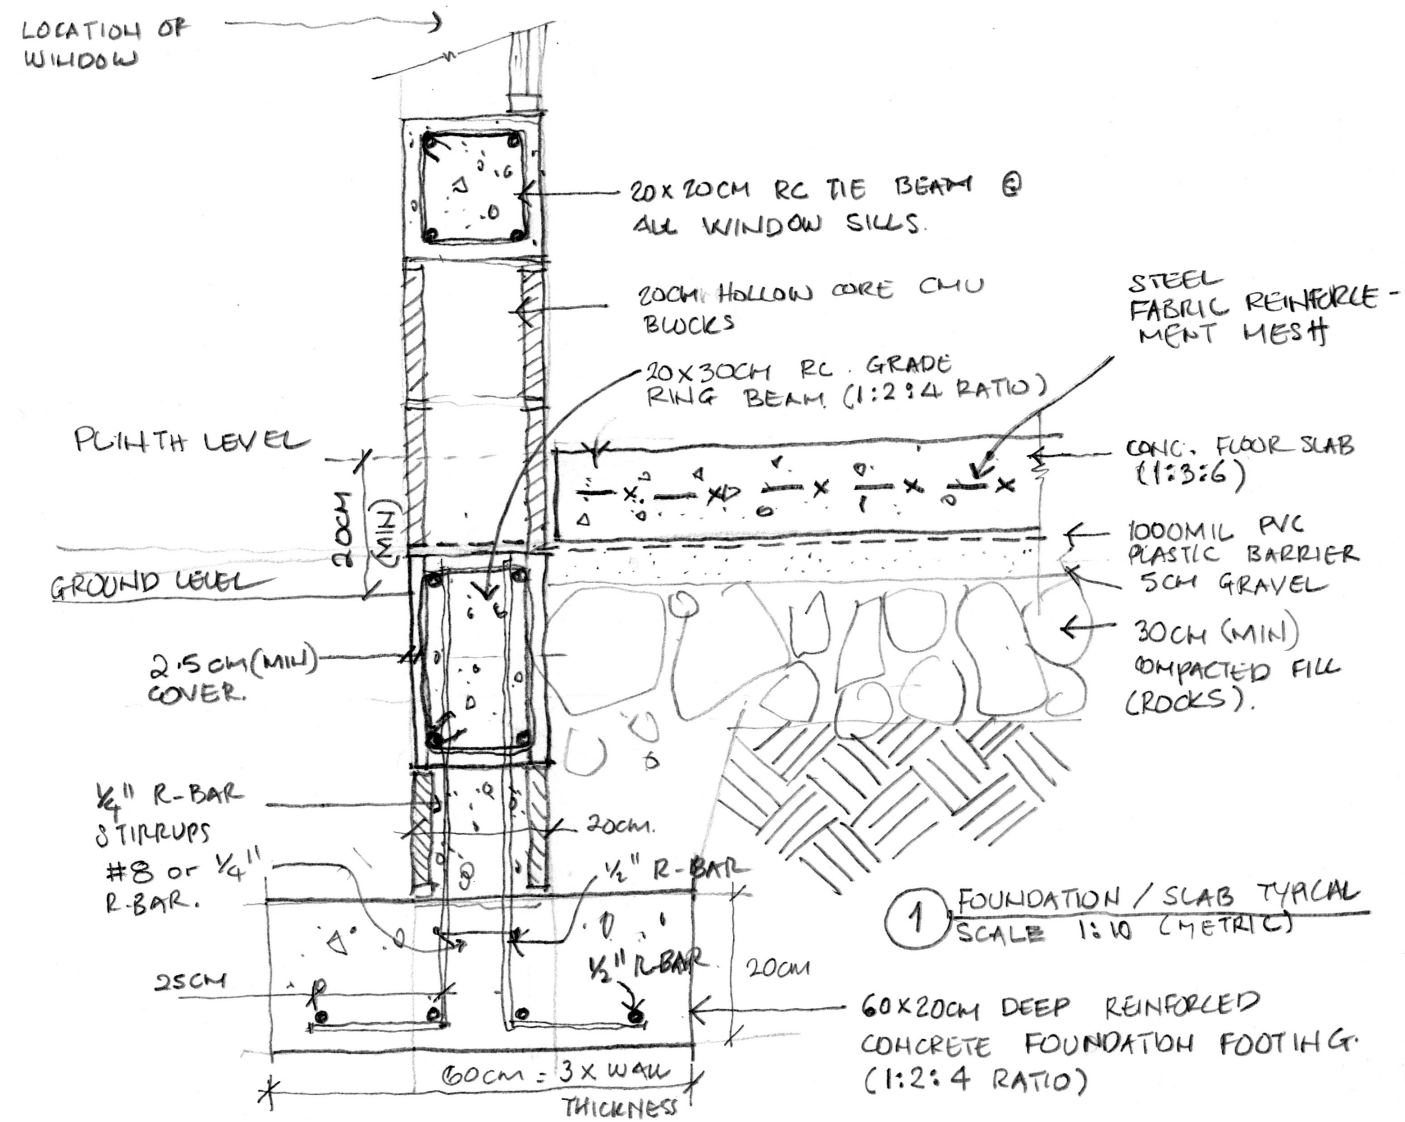 LOCATION OF
WINDOW
20 X 20CM RC TIE BEAM @
ALL WINDOW SILLS.
20CM HOLLOW CORE CMU
BLOCKS
STEEL
FABRIC REINFORCE-
MENT MESH
20 X 30CM RC. GRADE
RING BEAM. (1:2:4 RATIO)
PLINTH LEVEL
20CM
(MIN)
GROUND LEVEL
CONC. FLOOR SLAB
(1:3:6)
1000MIL PVC
PLASTIC BARRIER
5CM GRAVEL
30CM (MIN)
COMPACTED FILL
(ROCKS).
2.5CM (MIN)
COVER.
1/4" R-BAR
STIRRUPS
#8 or 1/4"
R-BAR.
20CM.
1/2" R-BAR
1/2" R-BAR
25CM
20CM
1 FOUNDATION / SLAB TYPICAL
SCALE 1:10 (METRIC)
60X20CM DEEP REINFORCED
CONCRETE FOUNDATION FOOTING.
(1:2:4 RATIO)
60CM = 3 X WALL
THICKNESS